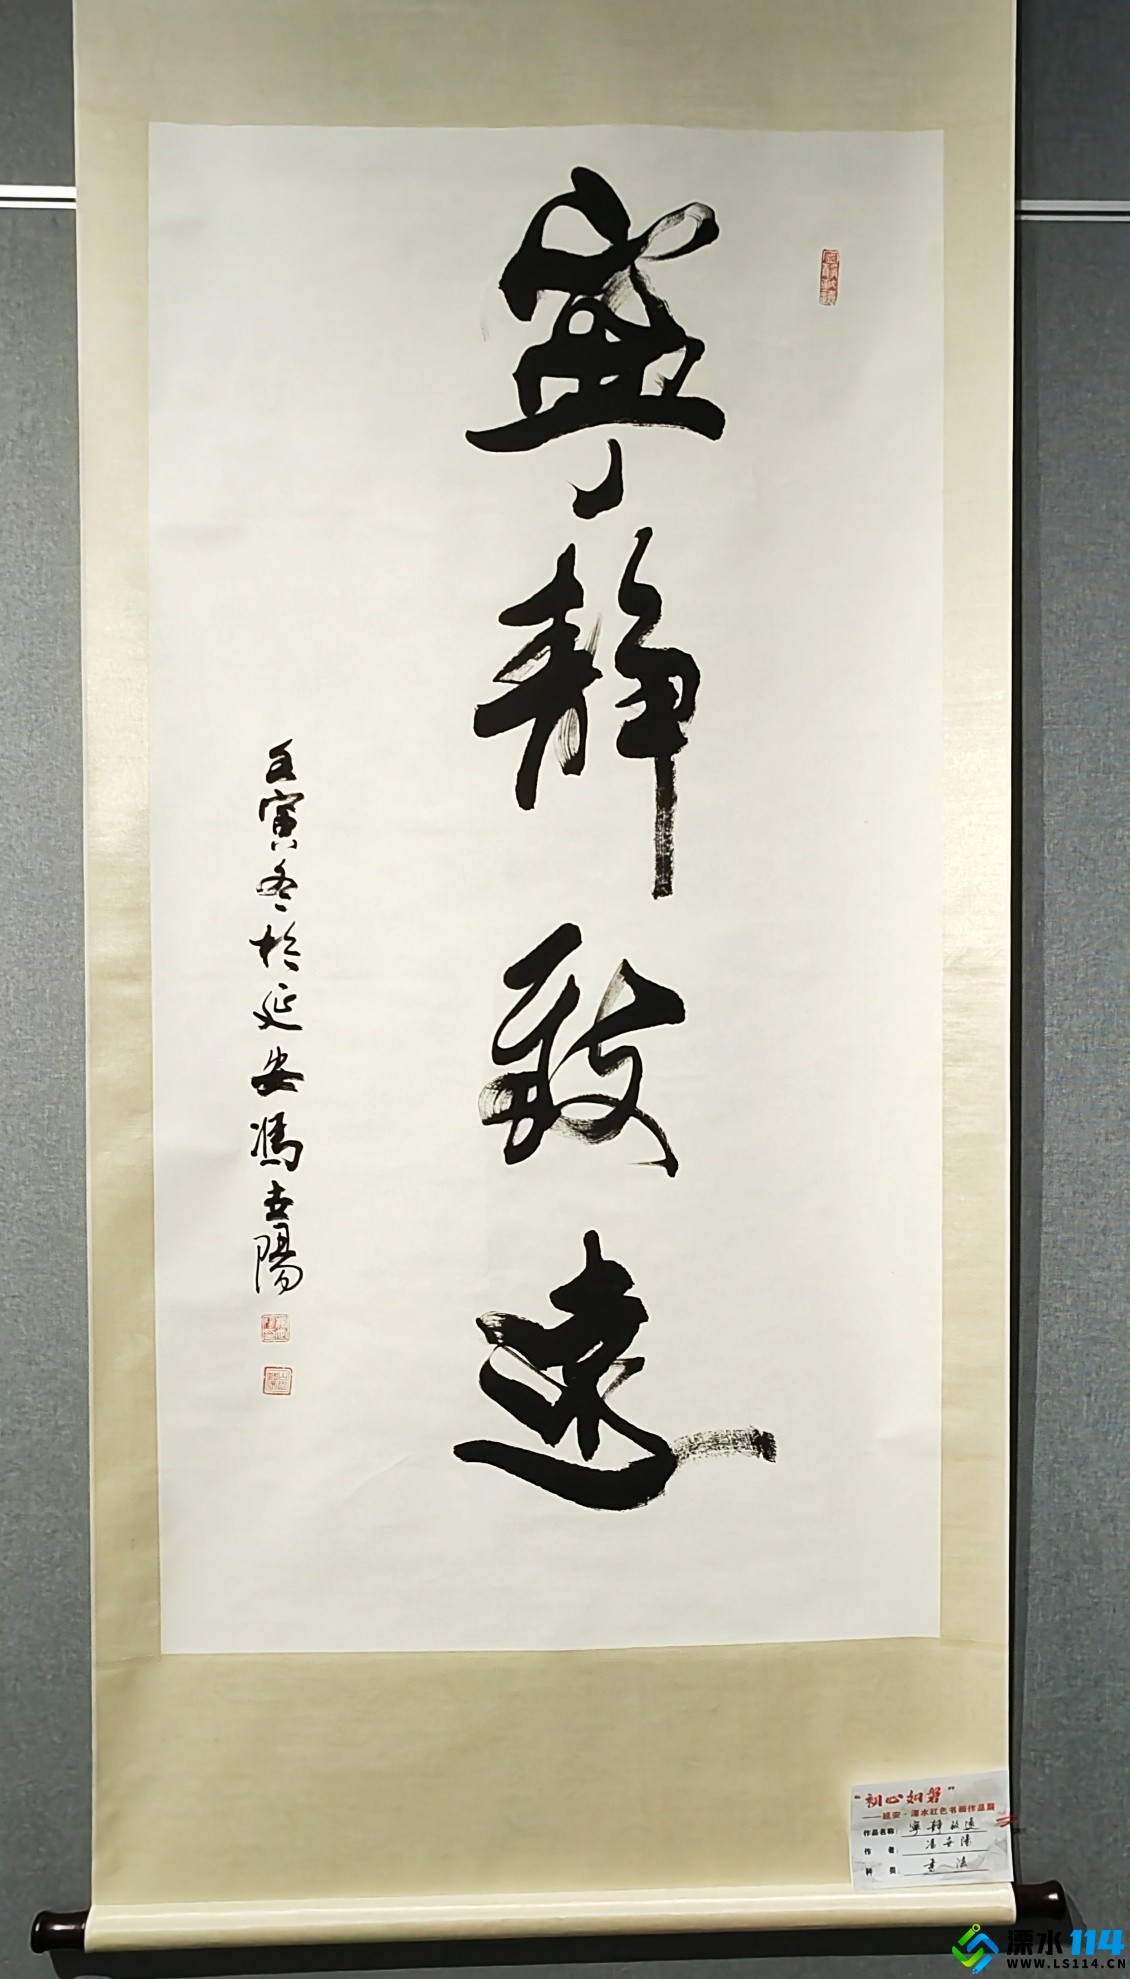 寧靜致遠
壬寅冬於延安馮世陽
"初心如磐"
——延安·溧水红色书画作品展
作品名称：宁静致远
作 者：冯世阳
种 类：书法
溧水114
WWW.LS114.CN